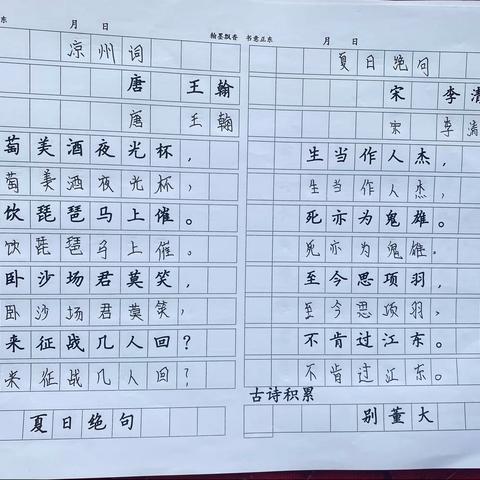 东 月 日
凉州词
唐 王翰
唐 王翰
萄美酒夜光杯，
萄美酒夜光杯，
饮琵琶马上催。
饮琵琶马上催。
卧沙场君莫笑，
卧沙场君莫笑，
来征战几人回？
来征战几人回？
夏日绝句
翰墨飘香 书意正东 月 日
夏日绝句
宋 李清
宋 李清
生当作人杰，
生当作人杰，
死亦为鬼雄。
死亦为鬼雄。
至今思项羽，
至今思项羽，
不肯过江东。
不肯过江东。
古诗积累
别董大